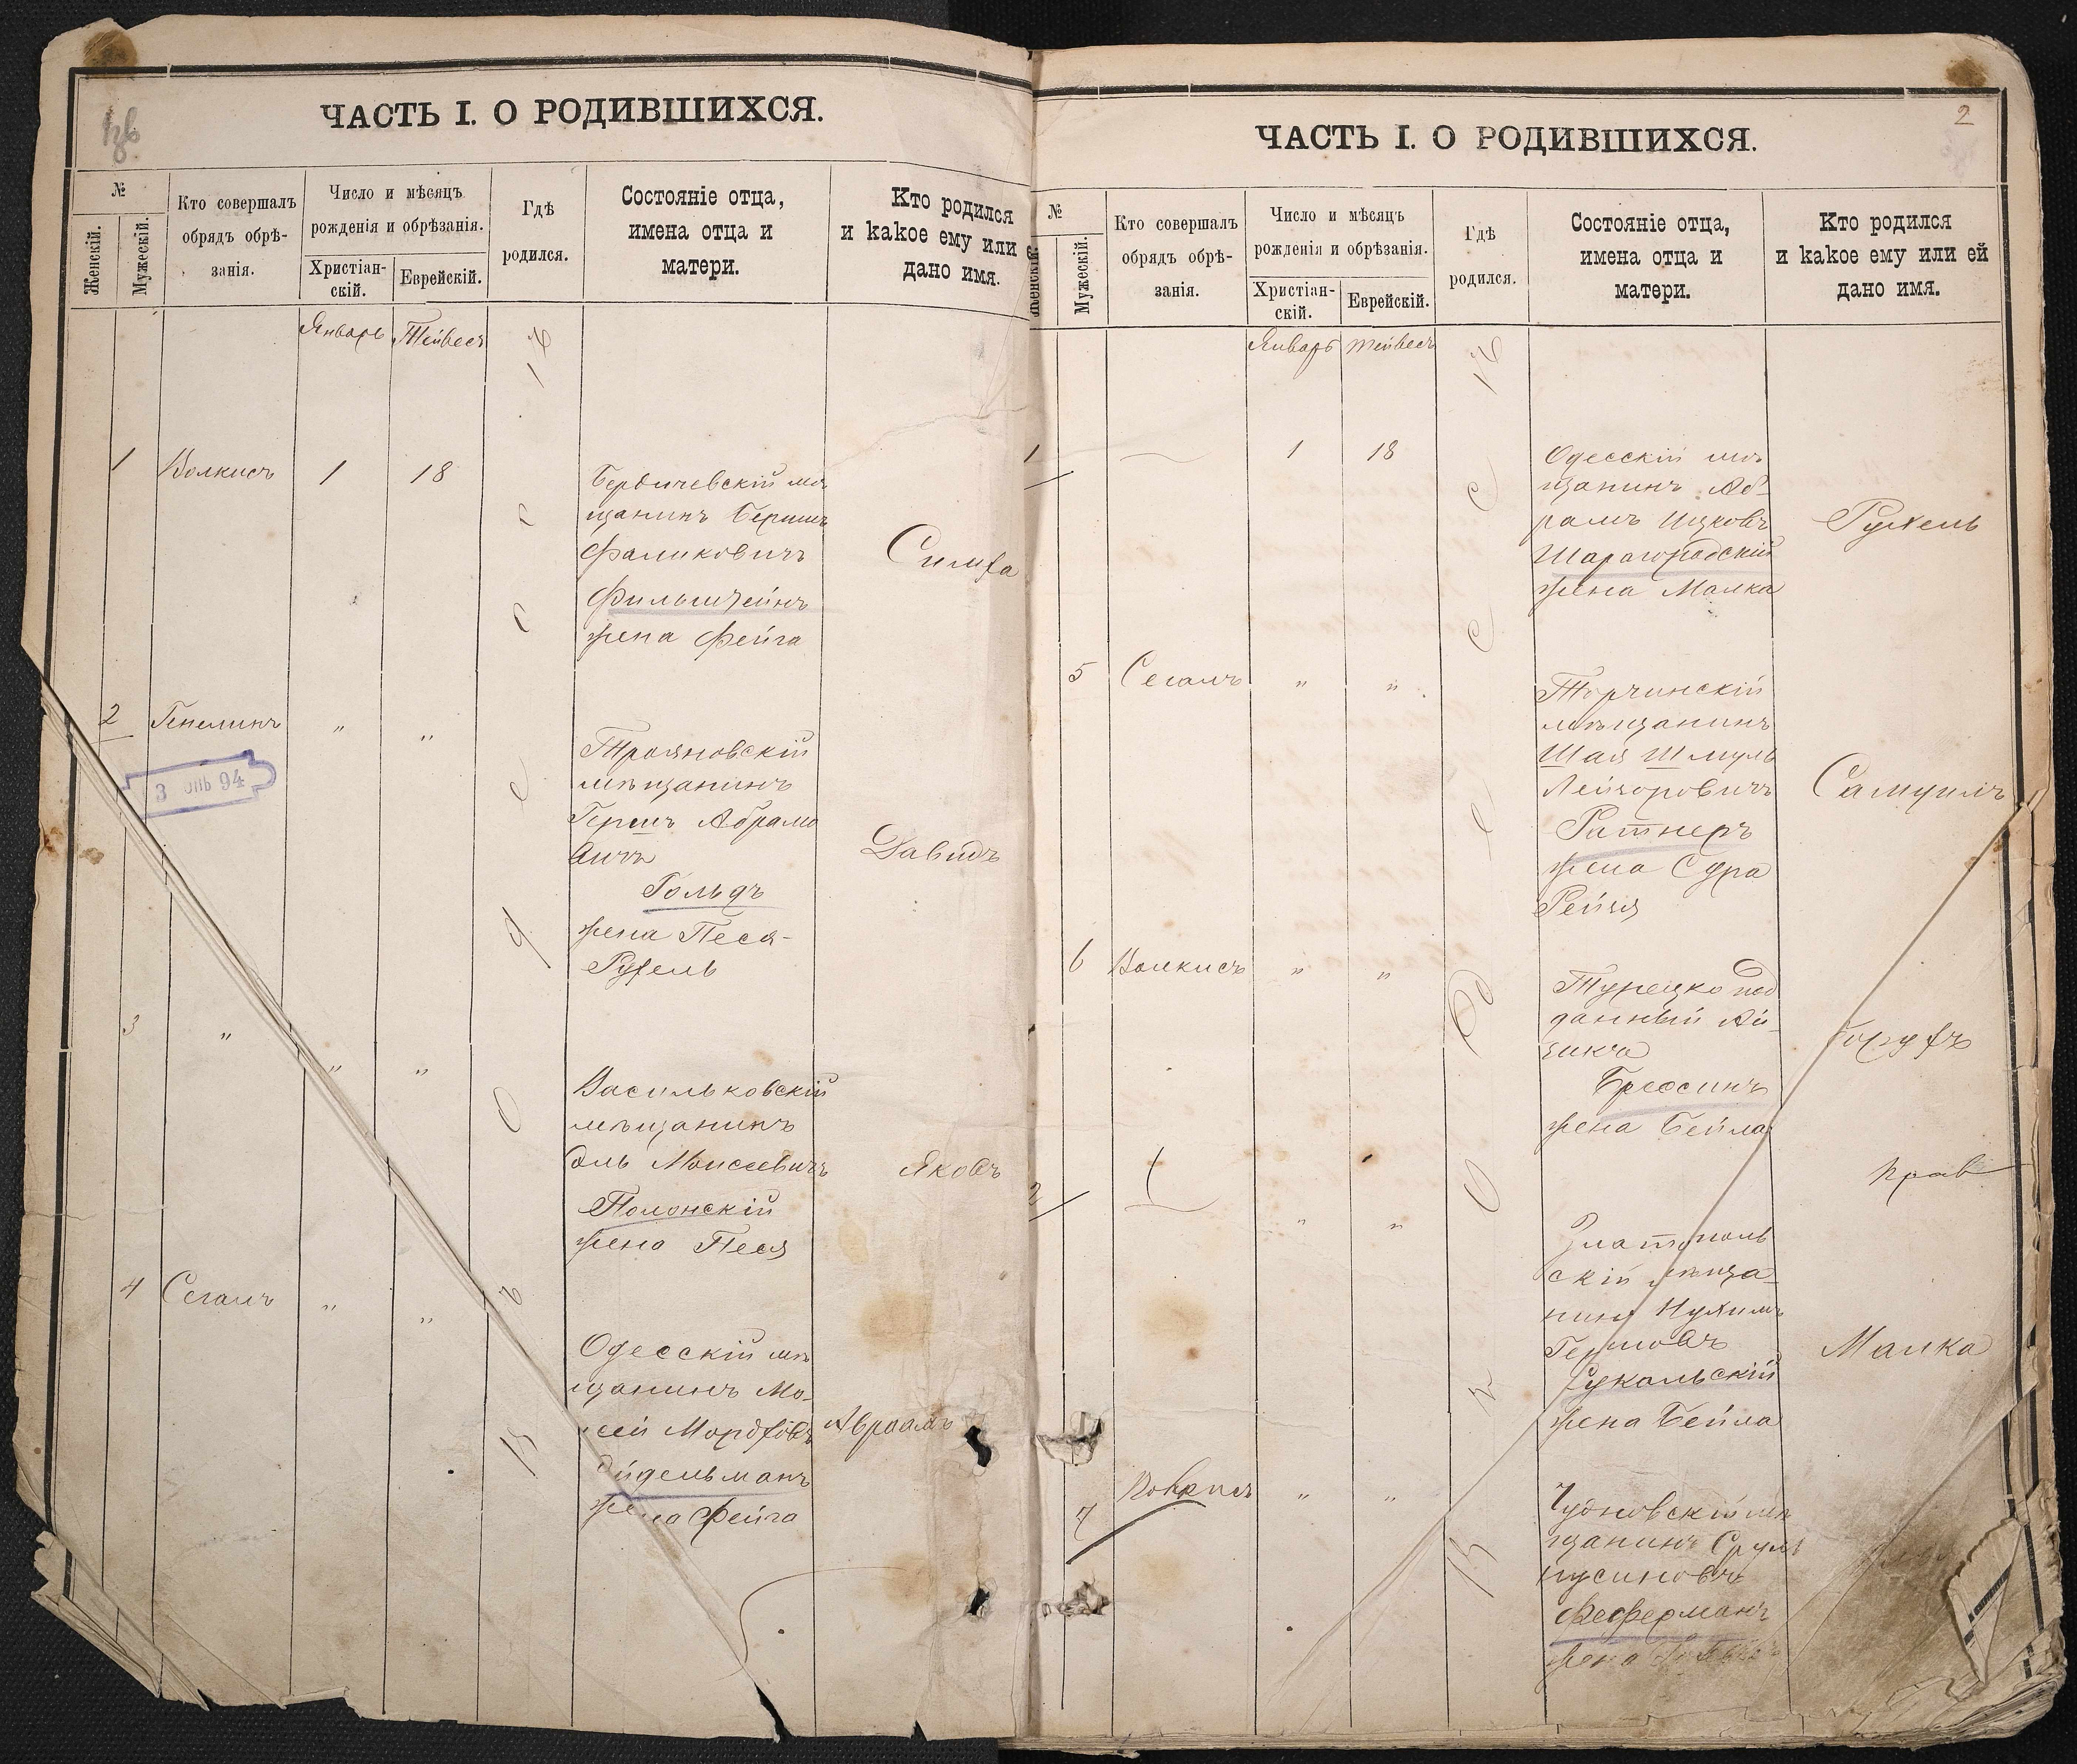 ЧАСТЬ I. О РОДИВШИХСЯ.
№
Женскій.
Мужескій.
Кто совершалъ
обрядъ обрѣ-
занія.
Число и мѣсяцъ
рожденія и обрѣзанія.
Христіан-
скій.
Еврейскій.
Гдѣ
родился.
Состояніе отца,
имена отца и
матери.
Кто родился
и какое ему или
дано имя.
Январь Тейвесъ
1 Волкисъ 1 18
Бердичевскій мѣ
щанинъ Бершъ
Фаликовичъ
Фильштейнъ
жена Фейга
Симха
2 Генелинъ " "
3 94
Трояновскій
мѣщанинъ
Гершъ Абрамо
вичъ
Гольдъ
жена Песя-
Рухель
Давидъ
3 " " "
Васильковскій
мѣщанинъ
Моисеевичъ
Полонскій
жена Песя
Яковъ
4 Сегалъ " "
Одесскій мѣ
щанинъ Мо-
сей Мордховъ
Эйдельманъ
жена Фейга
Авраамъ
2
ЧАСТЬ I. О РОДИВШИХСЯ.
№
Женскій.
Мужескій.
Кто совершалъ
обрядъ обрѣ-
занія.
Число и мѣсяцъ
рожденія и обрѣзанія.
Христіан-
скій.
Еврейскій.
Гдѣ
родился.
Состояніе отца,
имена отца и
матери.
Кто родился
и какое ему или ей
дано имя.
Январь Тейвесъ
1 — 1 18
Одесскій мѣ
щанинъ Аб-
рамъ Ицковъ
Шарагородскій
жена Малка
Рухель
5 Сегалъ " "
Торчинскій
мѣщанинъ
Шая Шмуль
Лейзоровичъ
Ратнеръ
жена Сура
Рейзя
Самуилъ
6 Волкисъ " "
Турецко под
данный Ай-
зикъ
жена Бейла
2 — " "
Златополь
скій мѣща-
нинъ Нухимъ
Гершовъ
жена Бейла
Малка
7 " "
Чудновскій мѣ
щанинъ Сруль
Нусиновъ
Феферманъ
жена